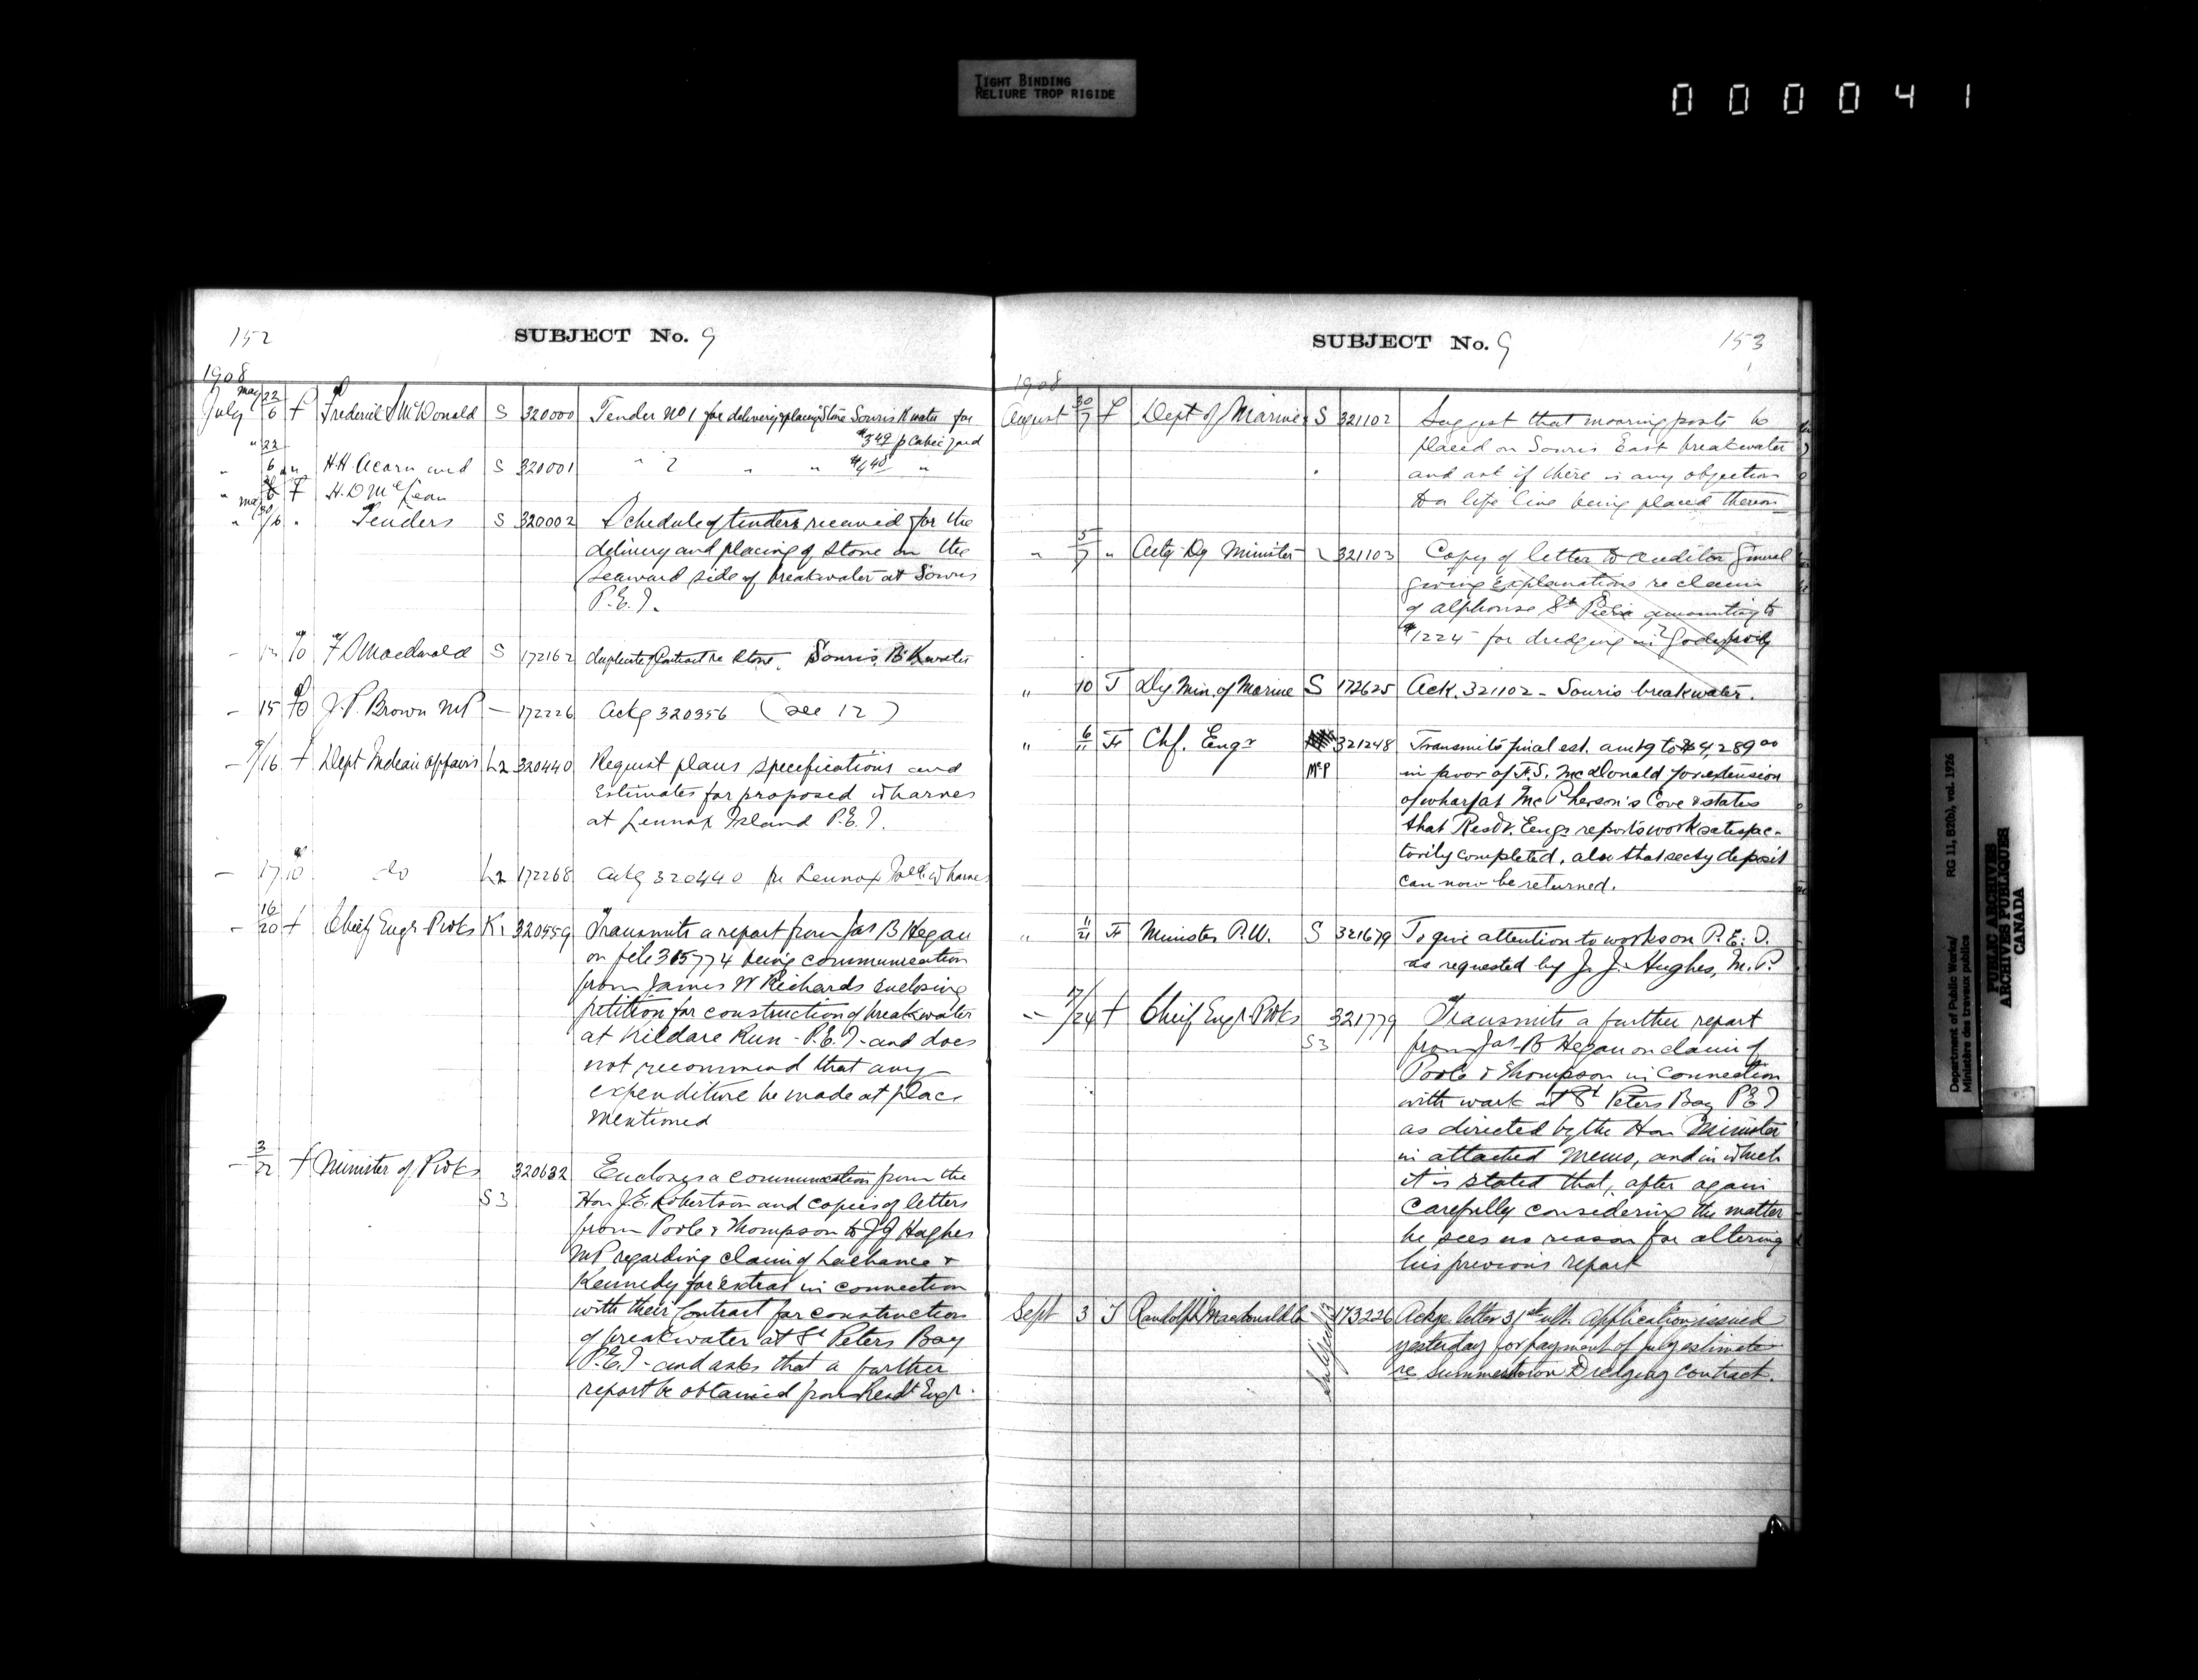 TIGHT BINDING
RELIURE TROP RIGIDE
000041
152
SUBJECT No. 9
1908
July May 22/6 f Frederick S McDonald S 320000 Tender No 1 for delivery & placing Stone Souris Bkwater for
$3.49 p cubic yard
" 22/6 " H.H. Acorn and S 320001 " 2 " " $4.48 "
" 6 F H.D McLean
" May 30/6 " Tenders S 320002 Schedule of tenders received for the
delivery and placing of stone on the
seaward side of breakwater at Souris
P.E.I.
- 13 To F S Macdonald S 172162 duplicate of Contract re Stone, Souris Bkwater
- 15 To J.P. Brown MP — 172226 Ackg 320356 (See 12)
- 9/16 f Dept Indian Affairs L2 320440 Request plans specifications and
Estimates for proposed wharves
at Lennox Island P.E.I.
- 17 To do L2 172268 Ackg 320440 re Lennox wharves
- 16/20 f Chief Engr Pwks K1 320559 Transmits a report from Jas B Hegan
on file 315774 being communication
from James W Richards enclosing
petition for construction of breakwater
at Kildare Run - P.E.I - and does
not recommend that any
expenditure be made at place
mentioned
- 3/22 f Minister of Pwks 320632 Encloses a communication from the
S3 Hon J.E. Robertson and copies of letters
from Poole & Thompson to J J Hughes
MP regarding claim of Lachance &
Kennedy for extras in connection
with their Contract for construction
of breakwater at St Peters Bay
P.E.I - and asks that a further
report be obtained from Resdt Engr.
SUBJECT No. 9
153
1908
August 30/7 f Dept of Marine S 321102 Suggest that mooring posts be
placed on Souris East breakwater
and ask if there is any objection
to a life line being placed thereon
" 5/7 " Actg Dy Minister 321103 Copy of letter to Auditor General
giving Explanations re claim
of Alphonse St Pierre amounting to
$1224 - for dredging in
" 10 T Dy Min. of Marine S 172625 Ack. 321102 - Souris breakwater.
" 6/11 Fr Chf. Engr 321248 Transmits final est. amtg to $4,289.00
McP in favor of F.S. McDonald for extension
of wharf at McPherson's Cove & states
that Resdt. Engr reports work satisfac-
torily completed, also that secty deposit
can now be returned.
" 11/21 Fr Minister P.W. S 321679 To give attention to works on P.E.I.
as requested by J.J. Hughes, M.P.
- 17/24 f Chief Engr Pwks 321779 Transmits a further report
S3 from Jas B Hegan on claim of
Poole & Thompson in connection
with work at St Peters Bay P.E.I
as directed by the Hon Minister
in attached memo, and in which
it is stated that, after again
Carefully considering the matter
he sees no reason for altering
his previous report
Sept 3 T Randolph Macdonald Co 173226 Ackge letter 31st ult. Application issued
yesterday for payment of July estimate
re Summerstown Dredging contract.
Department of Public Works/
Ministère des travaux publics
RG 11, B2(b), vol. 1926
PUBLIC ARCHIVES
ARCHIVES PUBLIQUES
CANADA